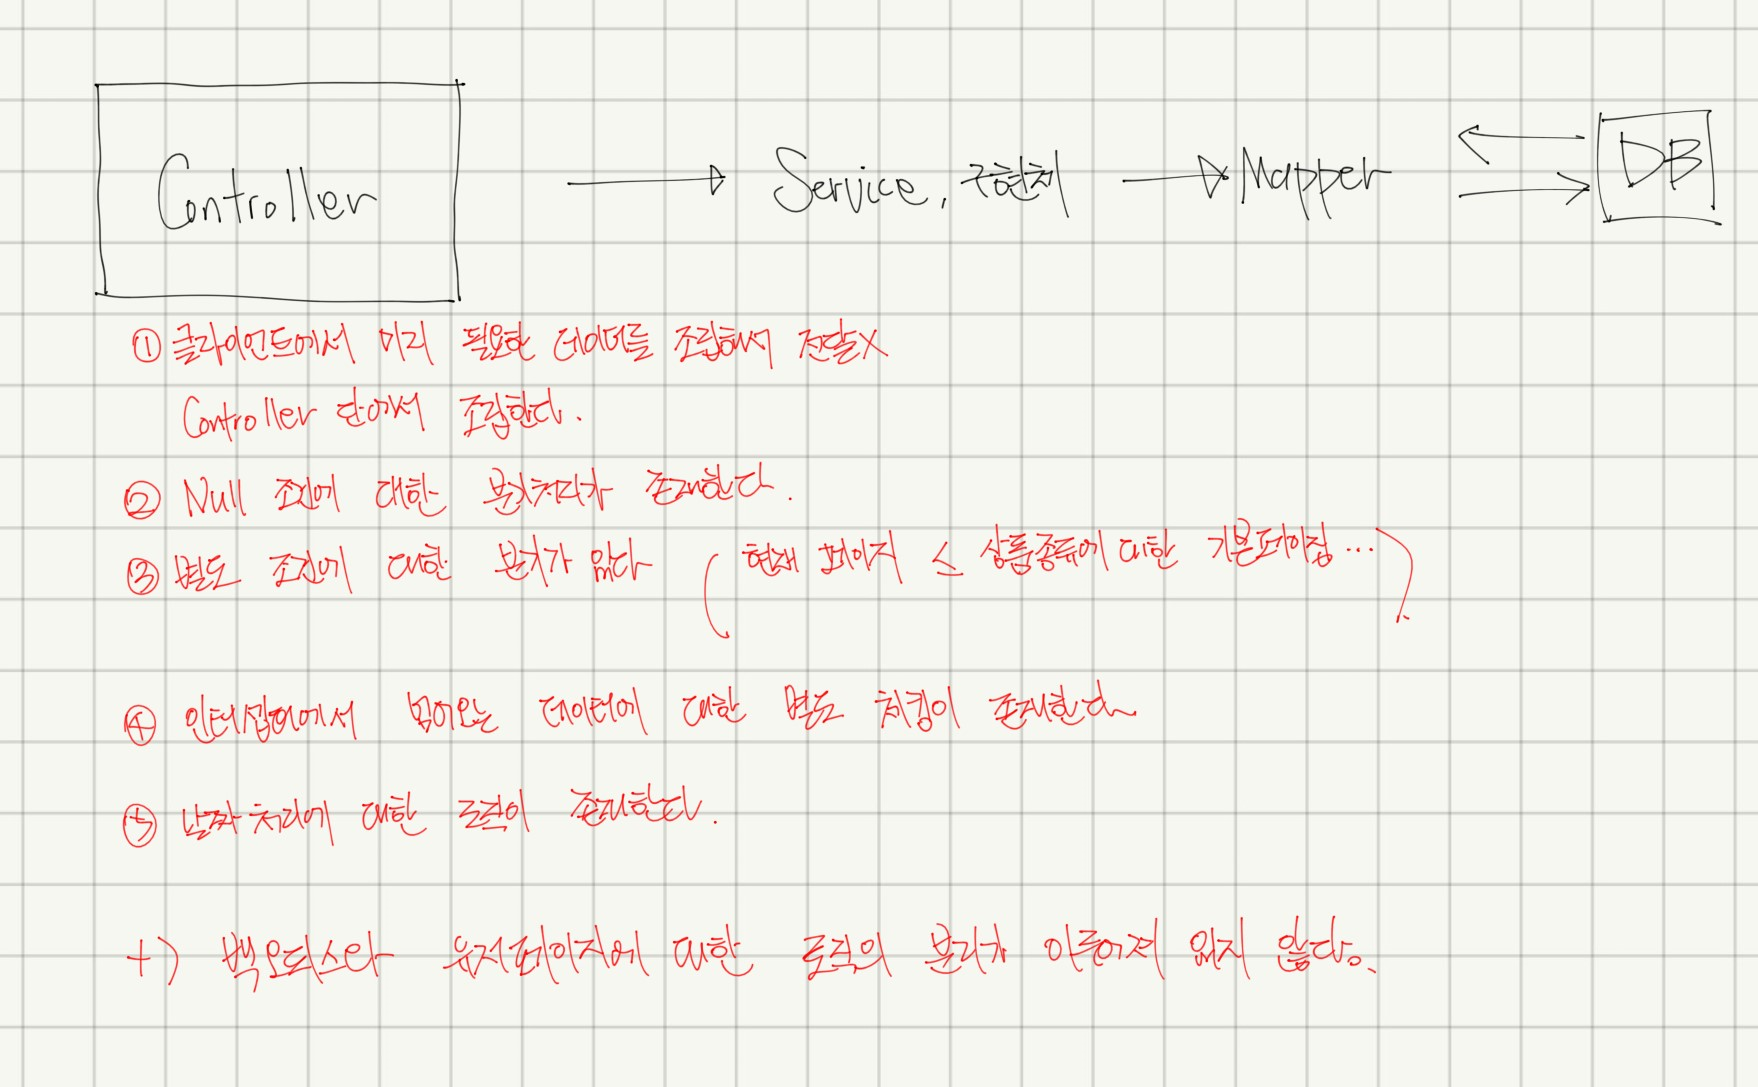 Controller → Service, 구현체 → Mapper ⇄ DB
① 클라이언트에서 미리 필요한 데이터를 조립해서 전달X
Controller 단에서 조립한다.
② Null 조건에 대한 분기처리가 존재한다.
③ 별도 조건에 대한 분기가 있다 ( 현재 페이지 ≤ 상품종류에 대한 기본페이징 ... )
④ 인터셉터에서 넘어오는 데이터에 대한 별도 체킹이 존재한다
⑤ 날짜 처리에 대한 로직이 존재한다.
+) 백오피스와 유저페이지에 대한 로직의 분리가 이루어져 있지 않다.